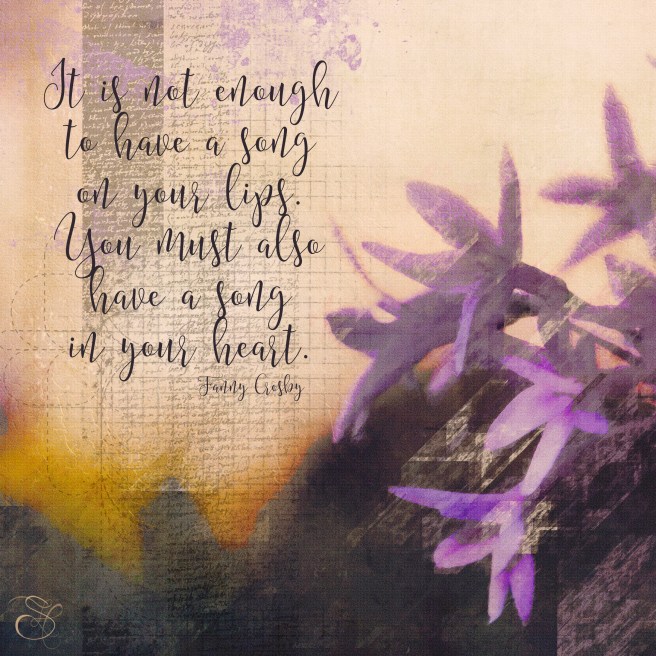 It is not enough
to have a song
on your lips.
You must also
have a song
in your heart.
Fanny Crosby